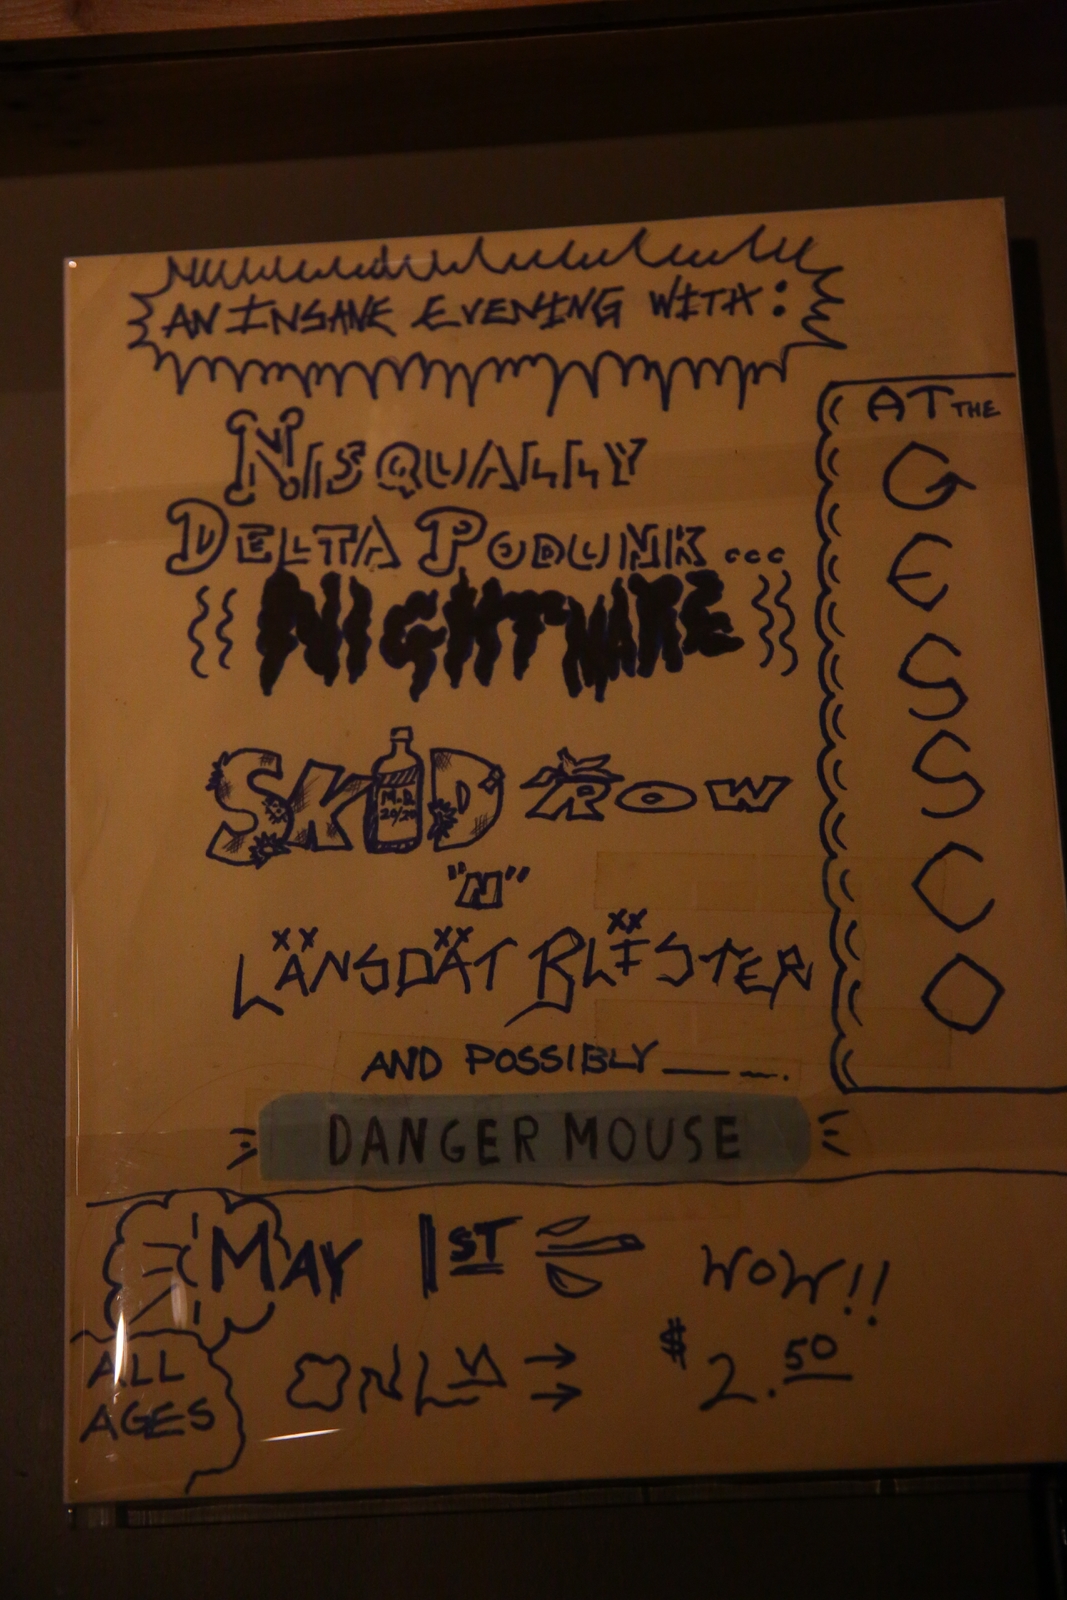 AN INSANE EVENING WITH:
NISQUALLY
DELTA PODUNK...
NIGHTMARE
SKID ROW
M.D.
20/20
"N"
LÄNSDÄT BLÏSTER
AND POSSIBLY
DANGER MOUSE
AT THE
GESSCO
MAY 1ST
WOW!!
ALL
AGES
ONLY → $2.50